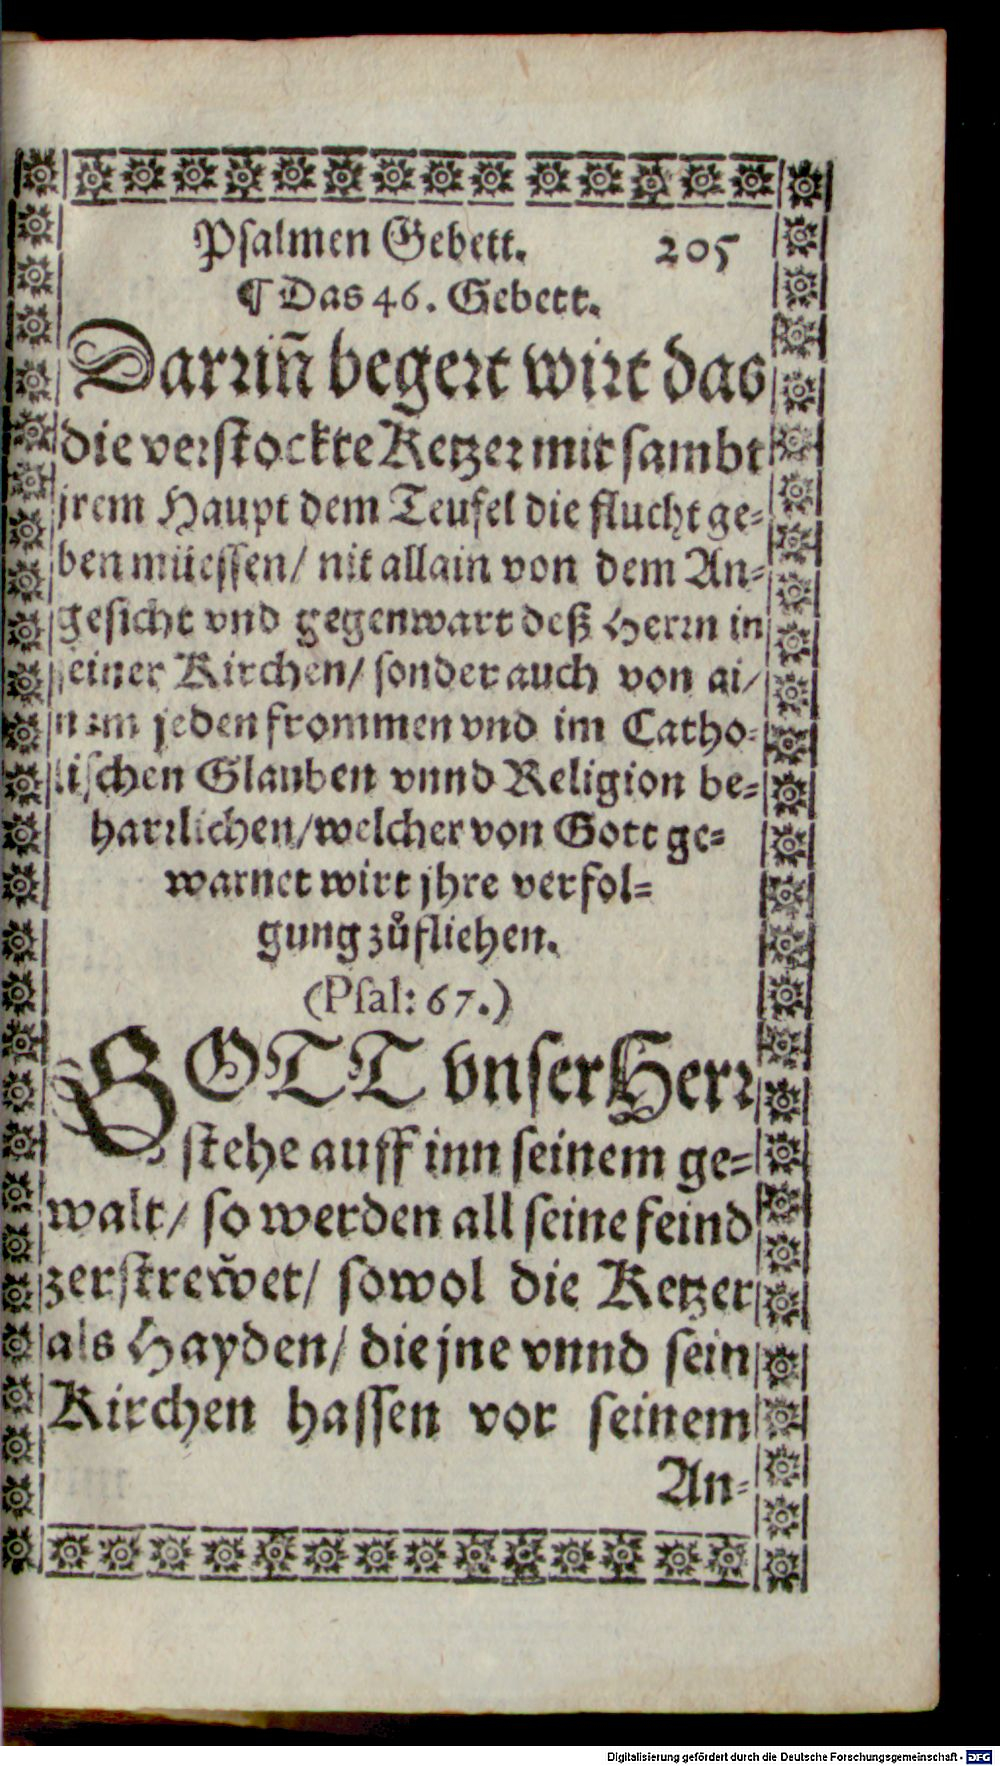 Psalmen Gebett. 205
¶ Das 46. Gebett.
Darriñ begert wirt das
die verstockte Ketzer mit sambt
jrem Haupt dem Teufel die flucht ge-
ben müessen/ nit allain von dem An-
gesicht vnd gegenwart deß Herrn in
seiner Kirchen/ sonder auch von ai/
nem jeden frommen vnd im Catho-
lischen Glauben vnnd Religion be-
harrlichen/ welcher von Gott ge-
warnet wirt jhre verfol-
gung zůfliehen.
(Psal: 67.)
GOTT vnser Herr
stehe auff inn seinem ge-
walt/ so werden all seine feind
zerstrewet/ sowol die Ketzer
als Hayden/ die jne vnnd sein
Kirchen hassen vor seinem
An-
Digitalisierung gefördert durch die Deutsche Forschungsgemeinschaft - DFG